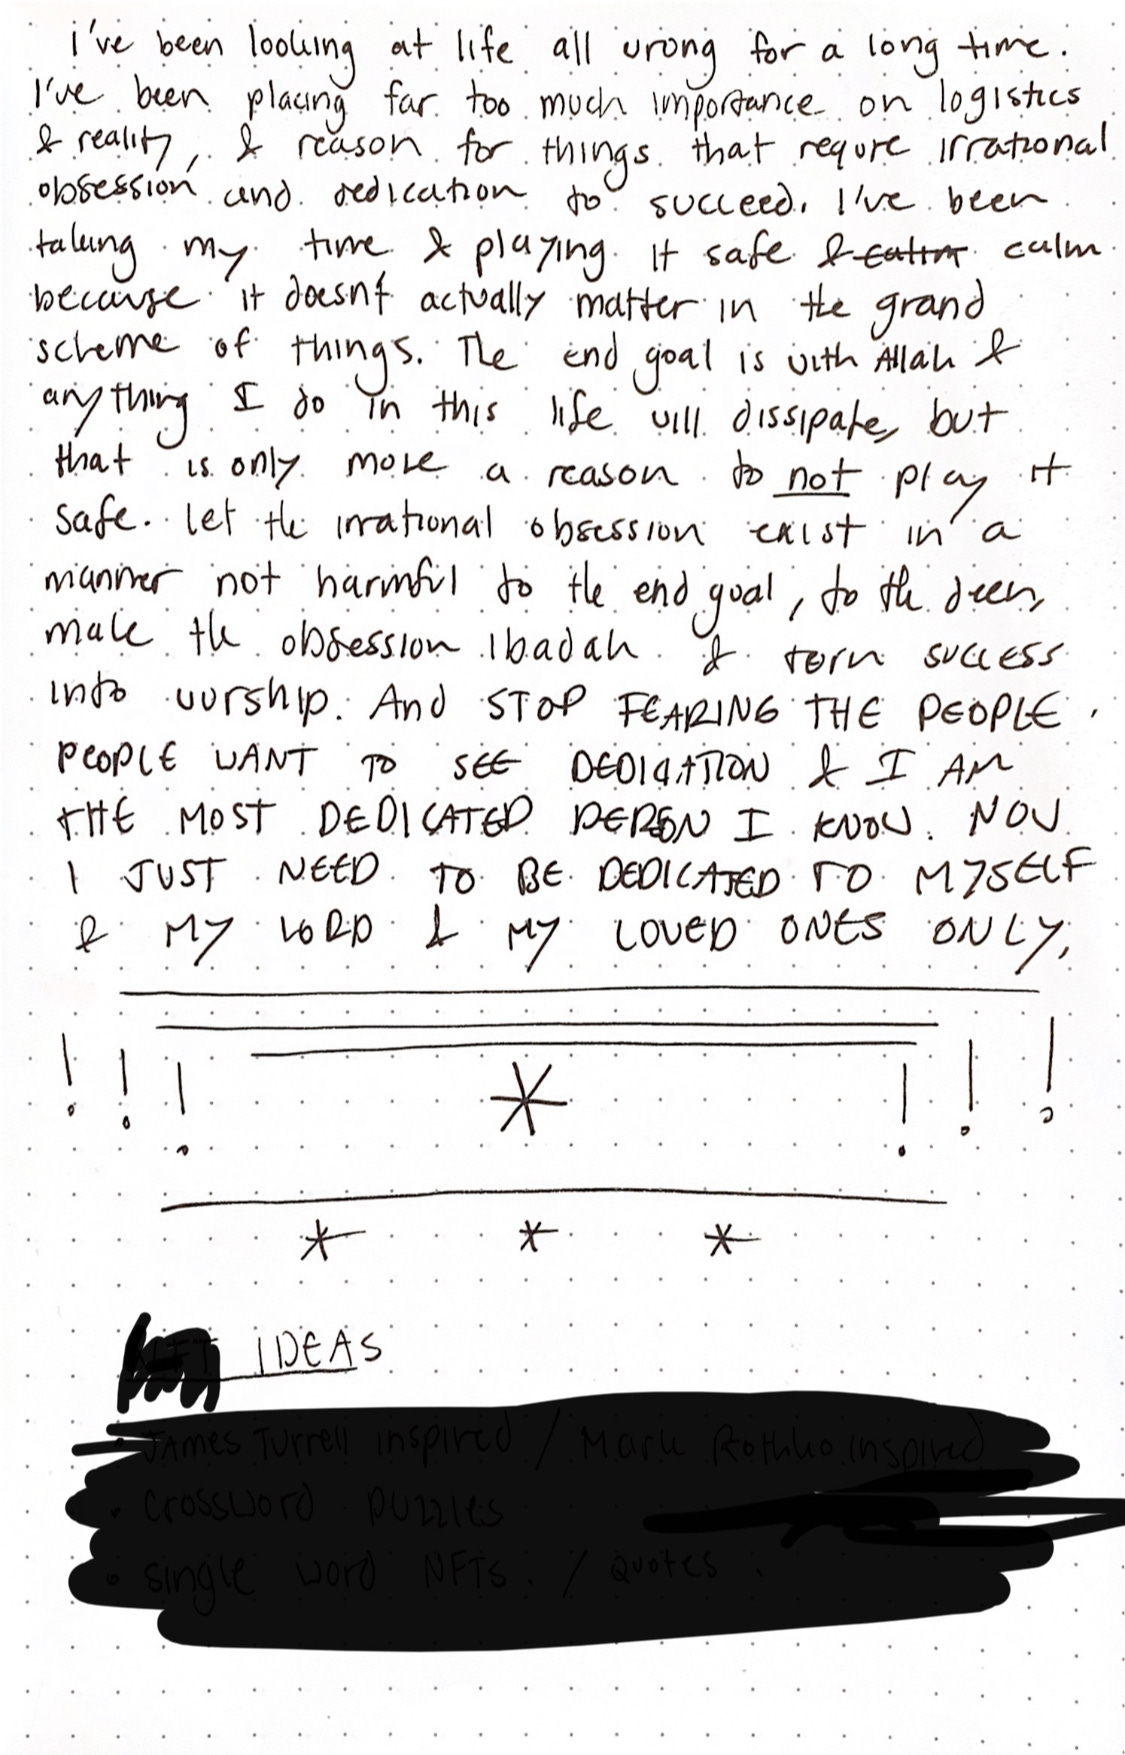 i've been looking at life all wrong for a long time.
I've been placing far too much importance on logistics
& reality, & reason for things that requre irrational
obsession and dedication to succeed. I've been
taking my time & playing it safe & calm
because it doesn't actually matter in the grand
scheme of things. The end goal is with Allah &
anything I do in this life will dissipate, but
that is only more a reason to not play it
safe. let the irrational obsession exist in a
manner not harmful to the end goal, to the deen,
make the obsession ibadah & torn success
into worship. And STOP FEARING THE PEOPLE.
PEOPLE WANT TO SEE DEDICATION & I AM
THE MOST DEDICATED PERSON I KNOW. NOW
I JUST NEED TO BE DEDICATED TO MYSELF
& MY LORD & MY LOVED ONES ONLY.
! ! ! * ! ! !
* * *
IDEAS